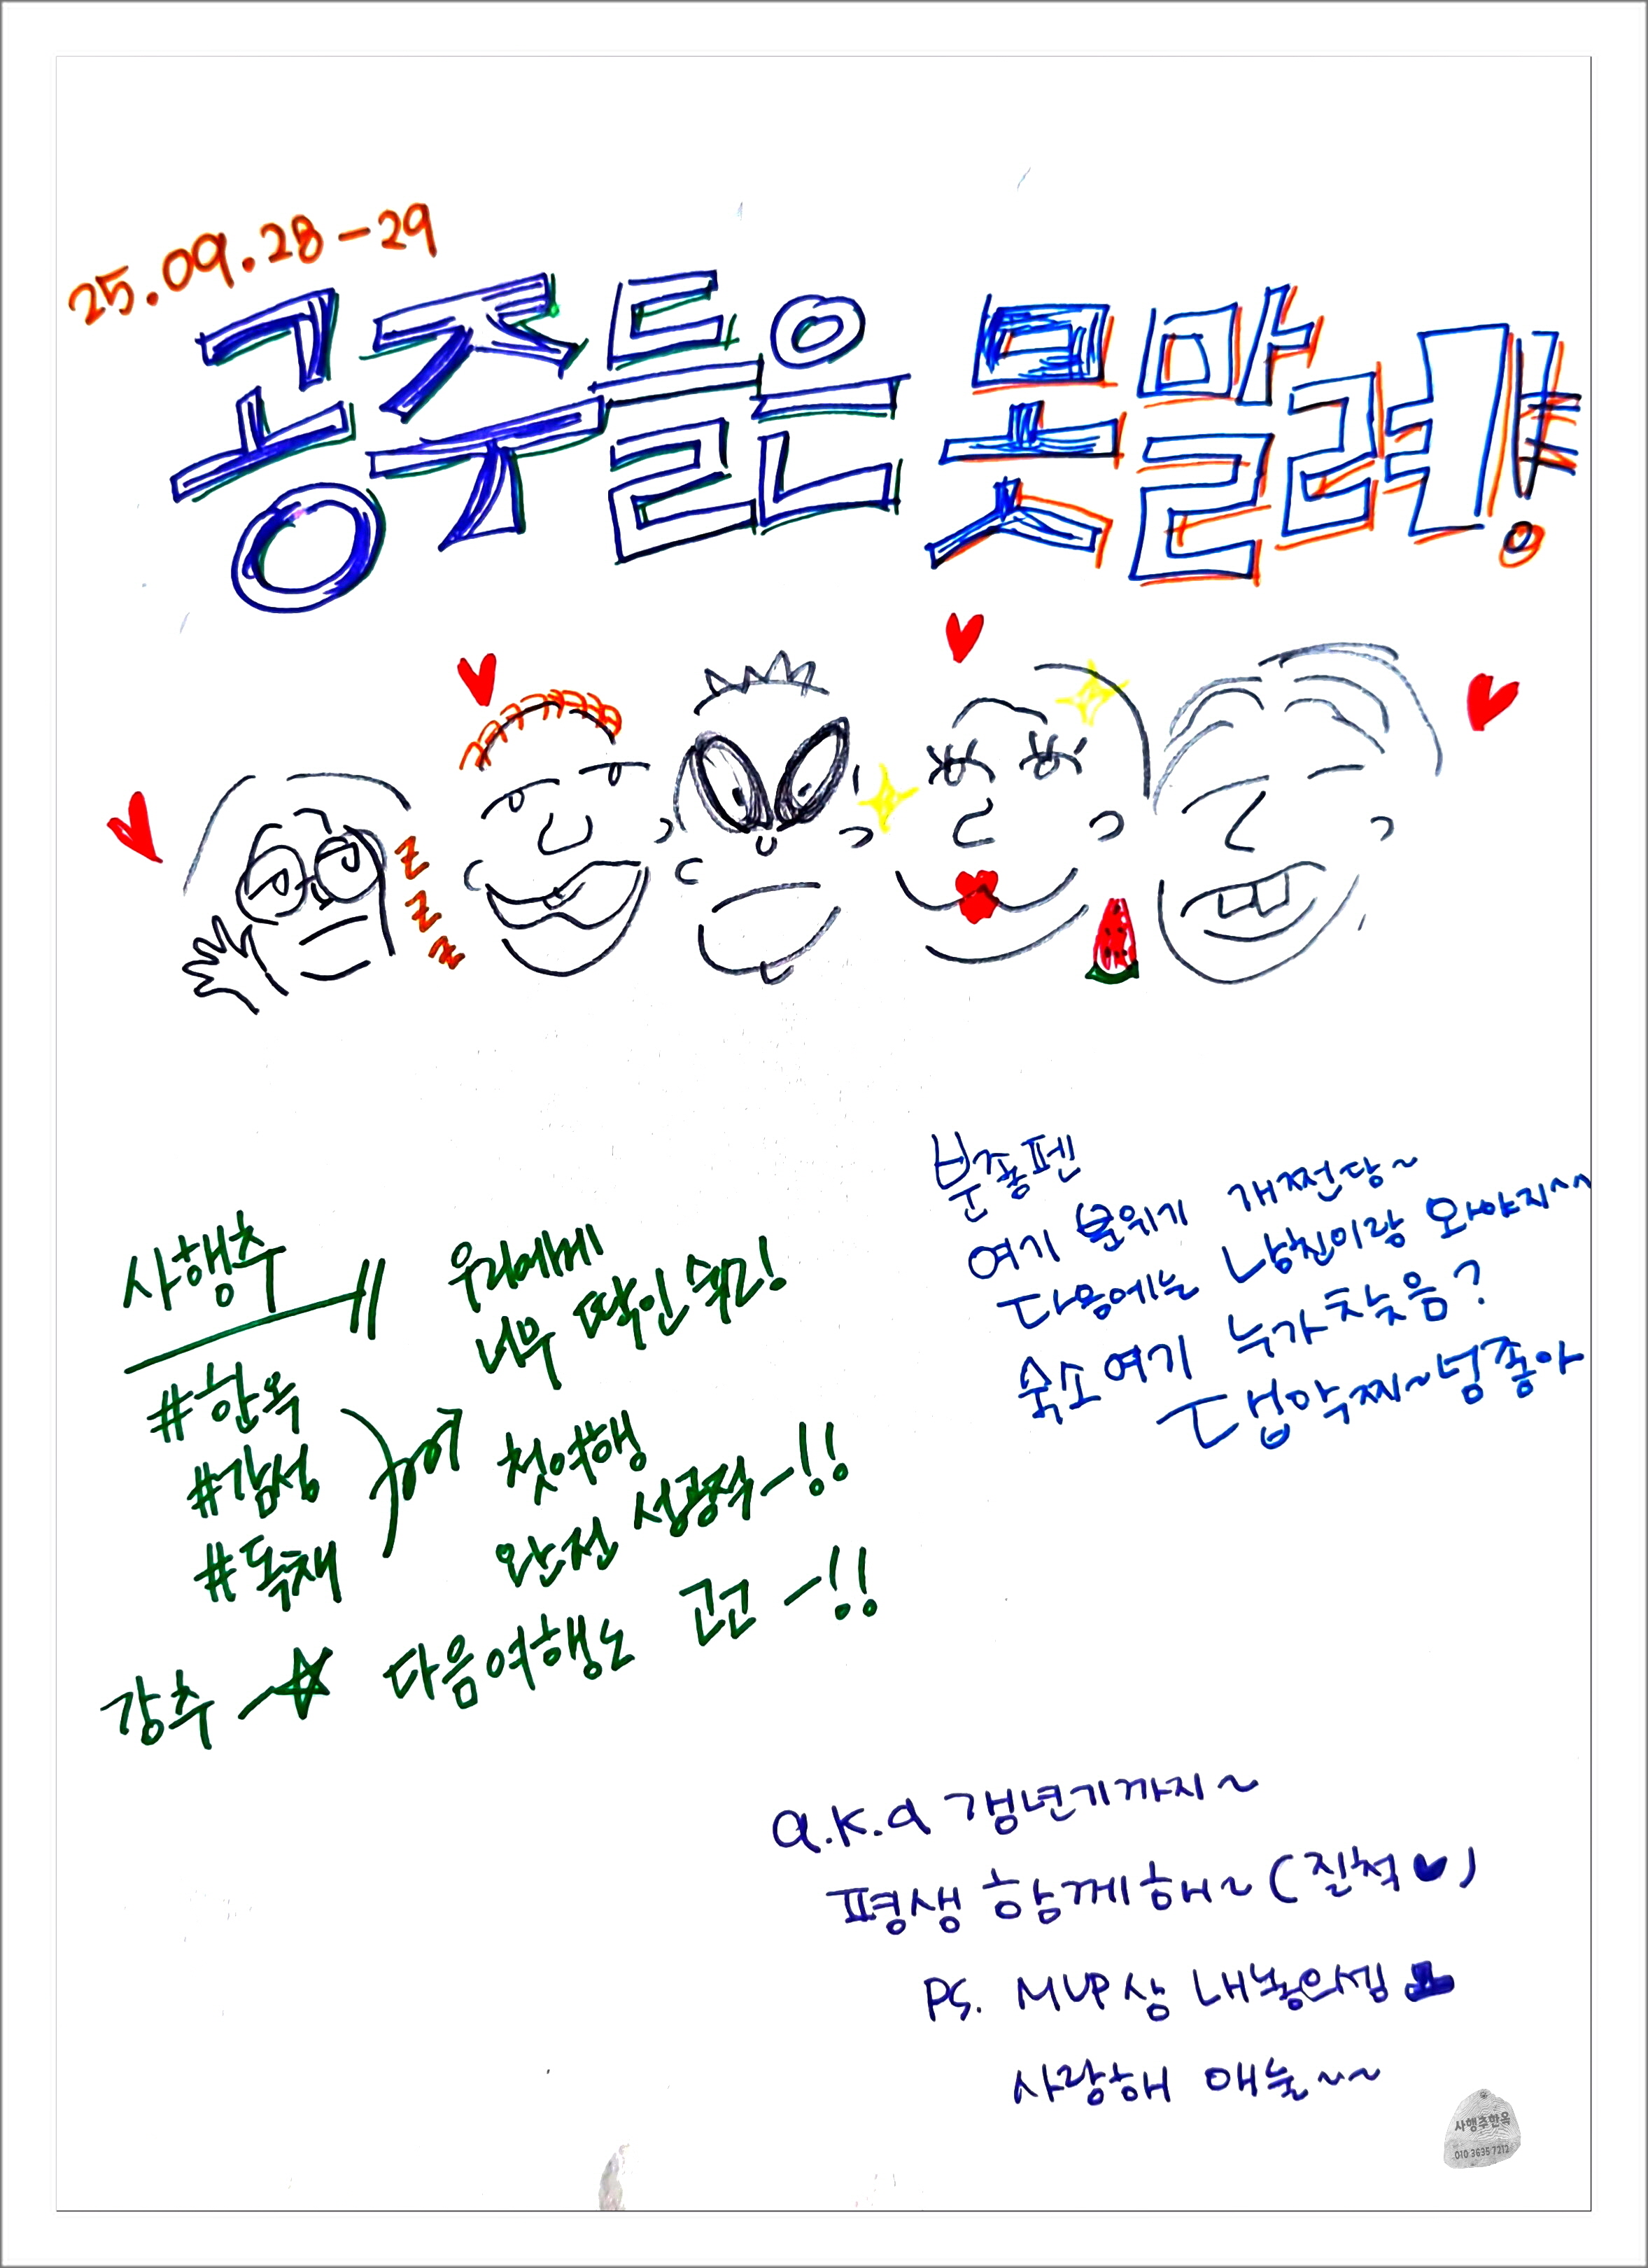 25.09.28-29
공주들은 못말려!
z z z
사행추
#한옥
#감성
#독채
우리에게
너무 딱인 숙소!
첫여행
완전 성공적-!!
강추 다음여행도 고고-!!
분홍펜
여기 분위기 개쩐당~
다음에는 남친이랑 와야지^^
숙소 여기 누가 찾음?
넘좋아
a.k.a 갱년기까지~
평생 함께해~(질척♥)
PS. MVP상 내놓으셈
사랑해 애들~~
사행추한옥
010 3635 7212